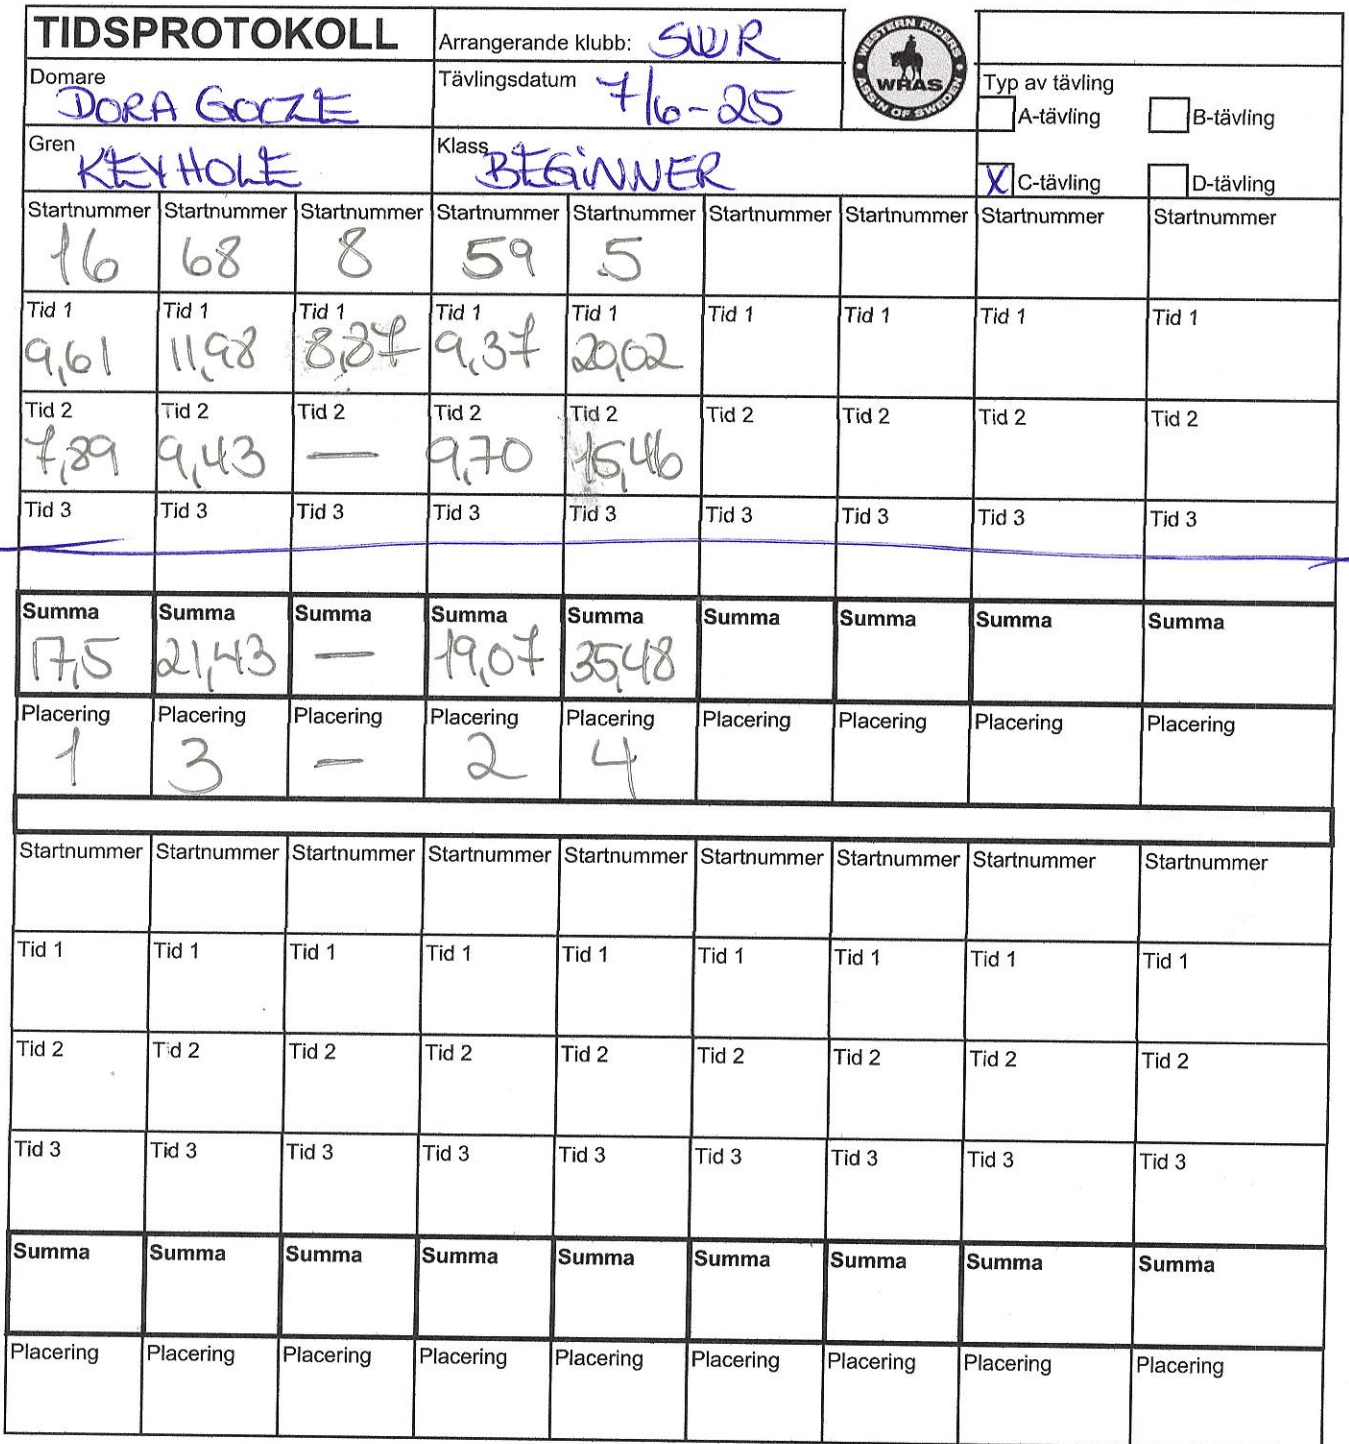 TIDSPROTOKOLL
Arrangerande klubb: SWR
WESTERN RIDERS
WRAS
ASS'N OF SWEDEN
Domare DORA GOCZE
Tävlingsdatum 7/6-25
Typ av tävling
A-tävling B-tävling
Gren KEYHOLE
Klass BEGINNER
X C-tävling D-tävling
Startnummer Startnummer Startnummer Startnummer Startnummer Startnummer Startnummer Startnummer Startnummer
16 68 8 59 5
Tid 1 Tid 1 Tid 1 Tid 1 Tid 1 Tid 1 Tid 1 Tid 1 Tid 1
9,61 11,98 8,87 9,37 20,02
Tid 2 Tid 2 Tid 2 Tid 2 Tid 2 Tid 2 Tid 2 Tid 2 Tid 2
7,89 9,43 — 9,70 15,46
Tid 3 Tid 3 Tid 3 Tid 3 Tid 3 Tid 3 Tid 3 Tid 3 Tid 3
Summa Summa Summa Summa Summa Summa Summa Summa Summa
17,5 21,43 — 19,07 35,48
Placering Placering Placering Placering Placering Placering Placering Placering Placering
1 3 — 2 4
Startnummer Startnummer Startnummer Startnummer Startnummer Startnummer Startnummer Startnummer Startnummer
Tid 1 Tid 1 Tid 1 Tid 1 Tid 1 Tid 1 Tid 1 Tid 1 Tid 1
Tid 2 Tid 2 Tid 2 Tid 2 Tid 2 Tid 2 Tid 2 Tid 2 Tid 2
Tid 3 Tid 3 Tid 3 Tid 3 Tid 3 Tid 3 Tid 3 Tid 3 Tid 3
Summa Summa Summa Summa Summa Summa Summa Summa Summa
Placering Placering Placering Placering Placering Placering Placering Placering Placering